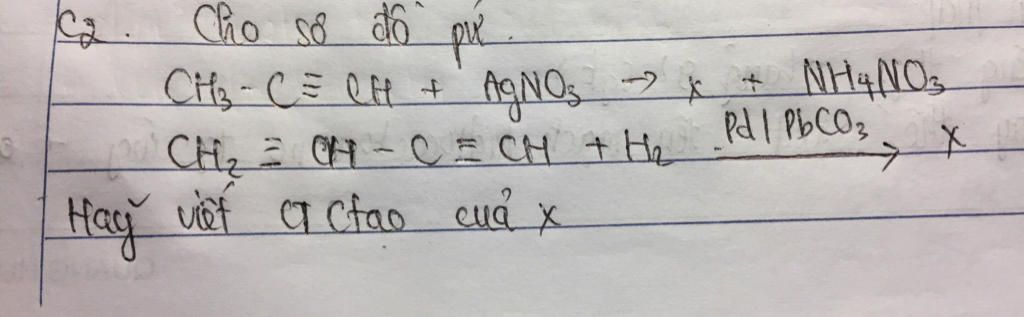 C2. Cho sơ đồ pư.
CH3 - C ≡ CH + AgNO3 → x + NH4NO3
CH2 ≡ CH - C ≡ CH + H2 Pd | PbCO3 → x
Haỹ viết CT Ctạo cuả x